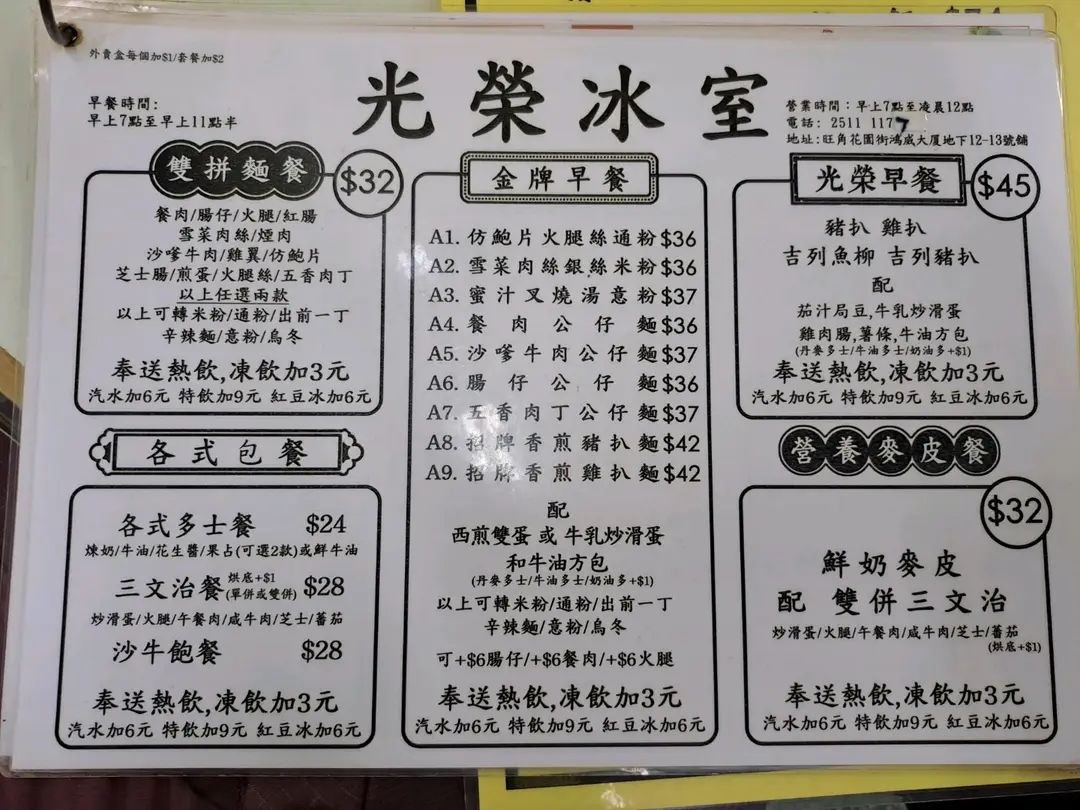 外賣盒每個加$1/套餐加$2
光榮冰室
早餐時間:
早上7點至早上11點半
營業時間：早上7點至凌晨12點
電話: 2511 1177
地址:旺角花園街鴻威大厦地下12-13號舖
雙拼麵餐 $32
餐肉/腸仔/火腿/紅腸
雪菜肉絲/煙肉
沙嗲牛肉/雞翼/仿鮑片
芝士腸/煎蛋/火腿絲/五香肉丁
以上任選兩款
以上可轉米粉/通粉/出前一丁
辛辣麵/意粉/烏冬
奉送熱飲,凍飲加3元
汽水加6元 特飲加9元 紅豆冰加6元
各式包餐
各式多士餐 $24
煉奶/牛油/花生醬/果占(可選2款)或鮮牛油
三文治餐 烘底+$1 (單併或雙併) $28
炒滑蛋/火腿/午餐肉/咸牛肉/芝士/蕃茄
沙牛飽餐 $28
奉送熱飲,凍飲加3元
汽水加6元 特飲加9元 紅豆冰加6元
金牌早餐
A1. 仿鮑片火腿絲通粉$36
A2. 雪菜肉絲銀絲米粉$36
A3. 蜜汁叉燒湯意粉$37
A4. 餐肉公仔麵$36
A5. 沙嗲牛肉公仔麵$37
A6. 腸仔公仔麵$36
A7. 五香肉丁公仔麵$37
A8. 招牌香煎豬扒麵$42
A9. 招牌香煎雞扒麵$42
配
西煎雙蛋 或 牛乳炒滑蛋
和牛油方包
(丹麥多士/牛油多士/奶油多+$1)
以上可轉米粉/通粉/出前一丁
辛辣麵/意粉/烏冬
可+$6腸仔/+$6餐肉/+$6火腿
奉送熱飲,凍飲加3元
汽水加6元 特飲加9元 紅豆冰加6元
光榮早餐 $45
豬扒 雞扒
吉列魚柳 吉列豬扒
配
茄汁局豆,牛乳炒滑蛋
雞肉腸,薯條,牛油方包
(丹麥多士/牛油多士/奶油多+$1)
奉送熱飲,凍飲加3元
汽水加6元 特飲加9元 紅豆冰加6元
營養麥皮餐
$32
鮮奶麥皮
配 雙併三文治
炒滑蛋/火腿/午餐肉/咸牛肉/芝士/蕃茄
(烘底+$1)
奉送熱飲,凍飲加3元
汽水加6元 特飲加9元 紅豆冰加6元